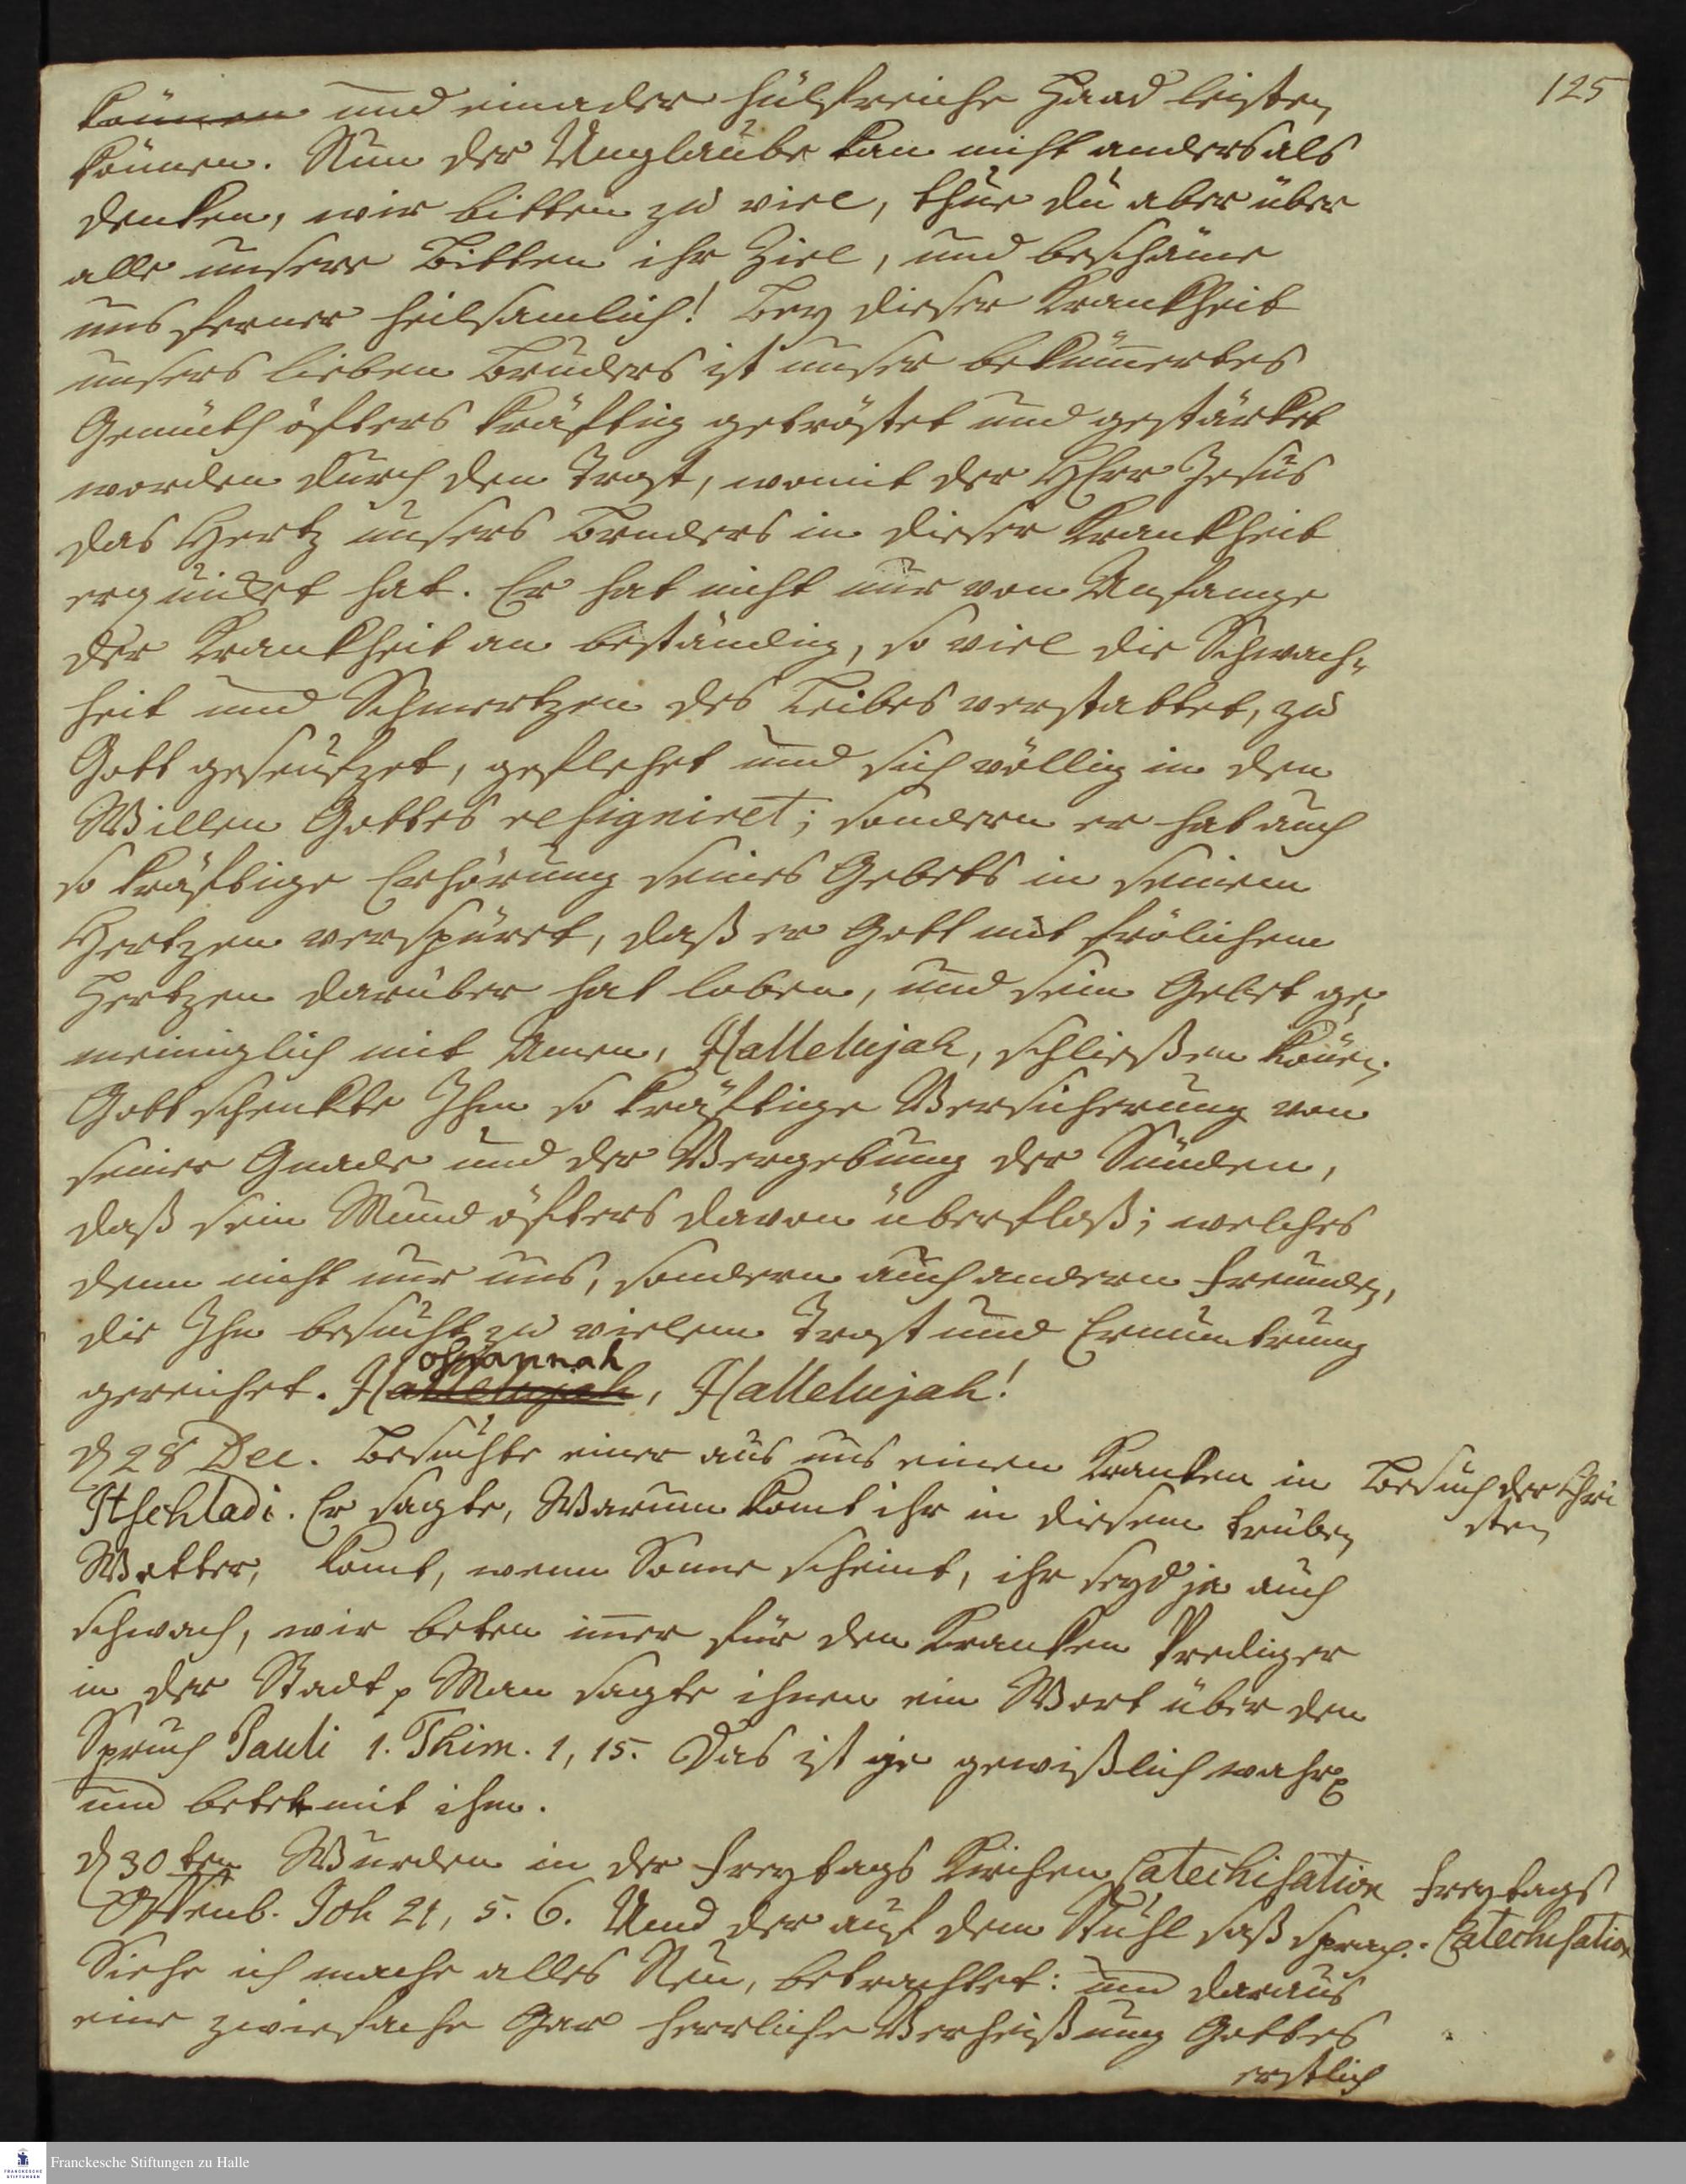 125
können und einader hülfreiche Hand leisten
können. Nun der Unglaube kan nicht anders als
denken, wir bitten zu viel, thue du aber über
alle unsere Bitten ihr Ziel, und beschäme
uns ferner heilsamlich! Bey dieser Krankheit
unsers lieben Bruders ist unser bekum̄ertes
Gemüth öfters kräftig getröstet und gestärket
worden durch den Trost, womit der HErr Jesus
das Hertz unsers Bruders in dieser Krankheit
erquicket hat. Er hat nicht nur von Anfange
der Krankheit an beständig, so viel die Schwach-
heit und Schmertzen des Leibes verstattet, zu
Gott geseufzet, geflehet und sich völlig in den
Willen Gottes resigniret; sondern er hat auch
so kräftige Erhörung seines Gebets in seinem
Hertzen verspüret, daß er Gott mit frölichem
Hertzen darüber hat loben, und sein Gebet ge-
meiniglich mit Amen, Hallelujah, schließen kön̄en.
Gott schenkte Ihm so kräftige Versicherung von
seiner Gnade und der Vergebung der Sünden,
daß sein Mund öfters davon überfloß; welches
denn nicht nur uns, sondern auch andern Freunden,
die Ihn besucht zu vielem Trost und Ermuntrung
osiannah
gereichet. Hallelujah, Hallelujah!
d 28 Dec. Besuchte einer aus uns einen Kranken in
Besuch der Chri
Itschladi. Er sagte, Warum komt ihr in diesem trüben
sten
Wetter, komt, wenn Sonne scheint, ihr seyd ja auch
schwach, wir beten im̄er für den Kranken Prediger
in der Stadt p Man sagte ihnen ein Wort über den
Spruch Pauli 1. Thim. 1, 15. Das ist je gewißlich wahr p
und betet mit ihm.
d 30ten Wurden in der Freytags Kirchen Catechisation
Freytags
Offenb. Joh 21, 5. 6. Und der auf dem Stuhl saß sprach.
Catechisation
Siehe ich mache alles Neu, betrachtet: und daraus
eine zwiefache Gar herrliche Verheißung Gottes
erstlich
Franckesche Stiftungen zu Halle
FRANCKESCHE
STIFTUNGEN